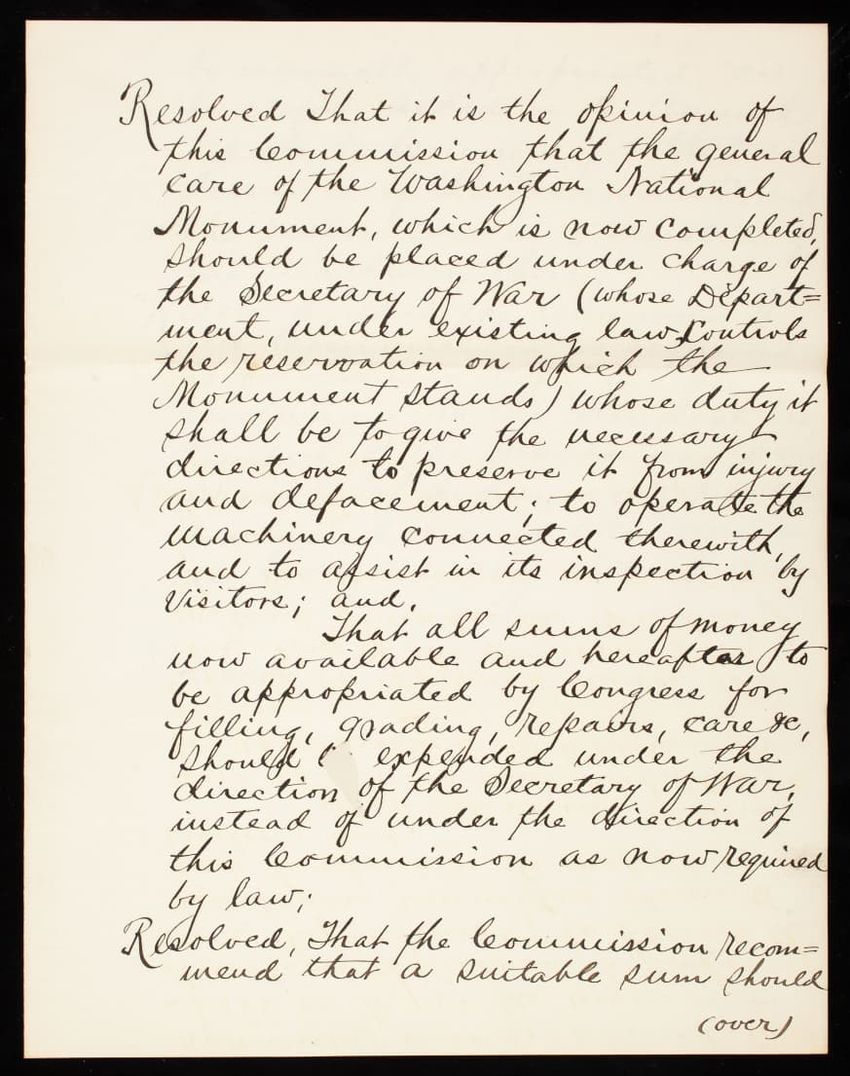 Resolved That it is the opinion of
this Commission that the general
care of the Washington National
Monument, which is now completed,
should be placed under charge of
the Secretary of War (whose Depart=
ment, under existing law, controls
the reservation on which the
Monument stands) whose duty it
shall be to give the necessary
directions to preserve it from injury
and defacement; to operate the
machinery connected therewith,
and to assist in its inspection by
visitors; and,
That all sums of money
now available and hereafter to
be appropriated by Congress for
filling, grading, repairs, care &c,
should expended under the
direction of the Secretary of War,
instead of under the direction of
this Commission as now required
by law;
Resolved, That the Commission recom=
mend that a suitable sum should
(over)